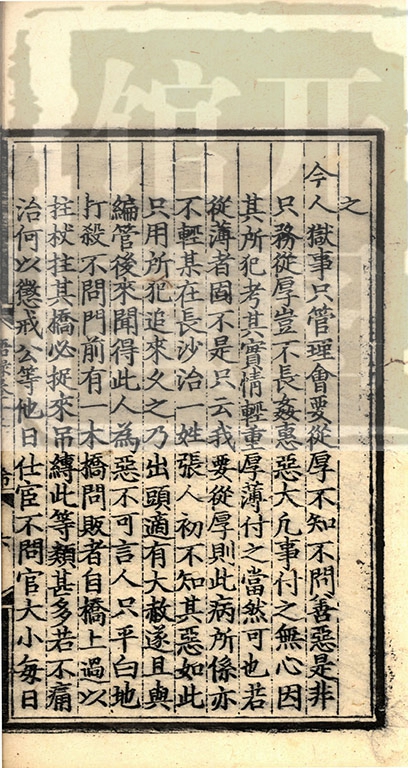 之
今人獄事只管理會要從厚不知不問善惡是非
只務從厚豈不長姦惠惡大凡事付之無心因
其所犯考其實情輕重厚薄付之當然可也若
從薄者固不是只云我要從厚則此病所係亦
不輕某在長沙治一姓張人初不知其惡如此
只用所犯追來久之乃出頭適有大赦遂且與
編管後來聞得此人為惡不可言人只平白地
打殺不問門前有一木橋問販者自橋上過以
拄杖拄其橋必捉來吊縛此等類甚多若不痛
治何以懲戒公等他日仕宦不問官大小每日